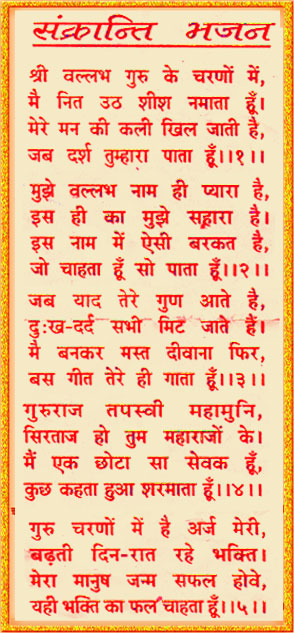 संक्रान्ति भजन
श्री वल्लभ गुरु के चरणों में,
मै नित उठ शीश नमाता हूँ।
मेरे मन की कली खिल जाती है,
जब दर्श तुम्हारा पाता हूँ।।१।।
मुझे वल्लभ नाम ही प्यारा है,
इस ही का मुझे सहारा है।
इस नाम में ऐसी बरकत है,
जो चाहता हूँ सो पाता हूँ।।२।।
जब याद तेरे गुण आते है,
दुःख-दर्द सभी मिट जाते है।
मै बनकर मस्त दीवाना फिर,
बस गीत तेरे ही गाता हूँ।।३।।
गुरुराज तपस्वी महामुनि,
सिरताज हो तुम महाराजों के।
मैं एक छोटा सा सेवक हूँ,
कुछ कहता हुआ शरमाता हूँ।।४।।
गुरु चरणों में है अर्ज मेरी,
बढ़ती दिन-रात रहे भक्ति।
मेरा मानुष जन्म सफल होवे,
यही भक्ति का फल चाहता हूँ।।५।।